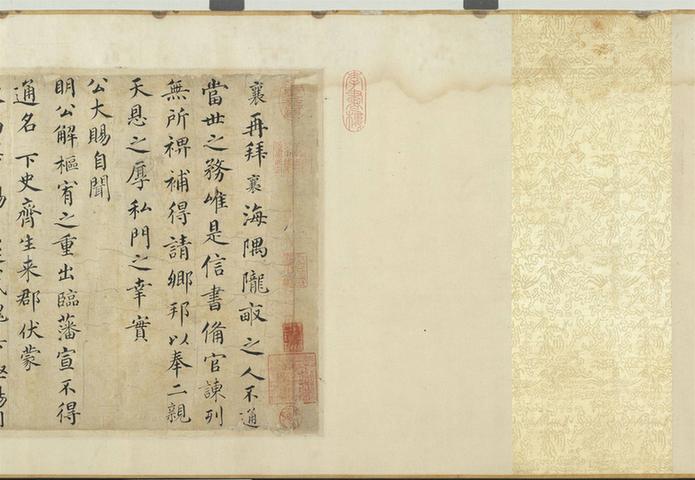 李書樓
襄再拜襄海隅隴畝之人不通
當世之務唯是信書備官諫列
無所裨補得請鄉邦以奉二親
天恩之厚私門之幸實
公大賜自聞
明公解樞宥之重出臨藩宣不得
通名下史齊生来郡伏蒙